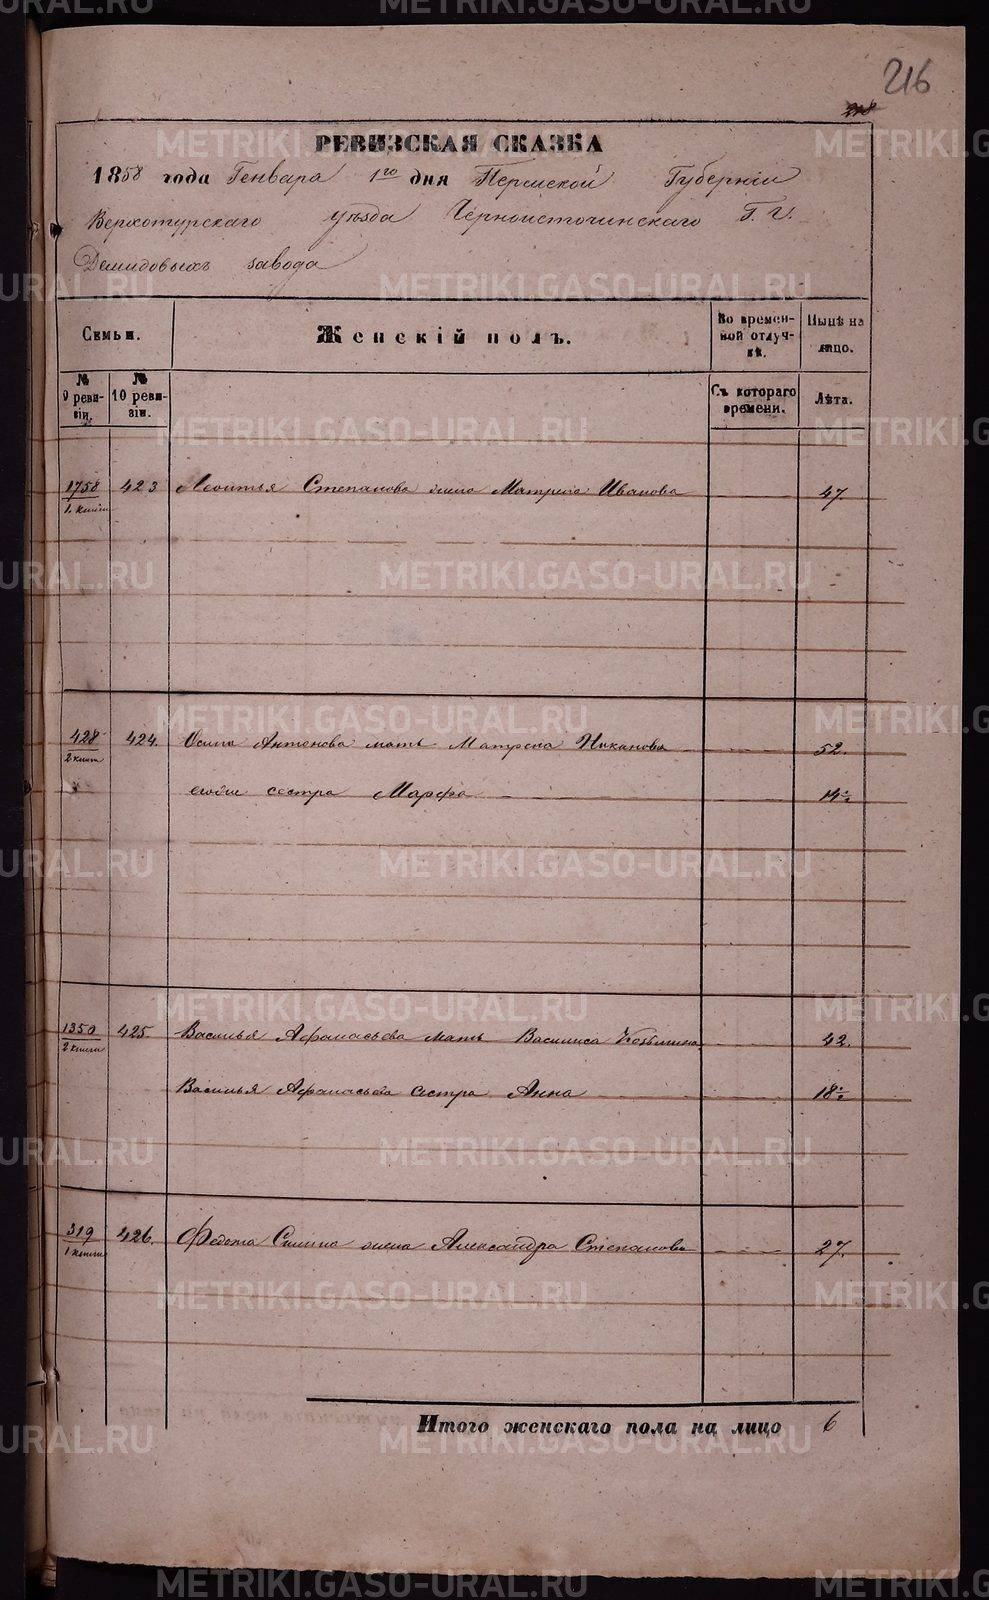 216
218
РЕВИЗСКАЯ СКАЗКА
1858 года Генваря 1го дня Пермской Губерніи
Верхотурскаго уѣзда Черноисточинскаго Г.г.
Демидовыхъ завода
Семьи.
Женскій полъ.
Во времен-
ной отлуч-
кѣ.
Нынѣ на
лицо.
№
9 реви-
зіи.
№
10 реви-
зіи.
Съ котораго
времени.
Лѣта.
1758
1 книги
423 Леонтья Степанова жена Матрена Иванова 47.
428
2 книги
424. Осипа Антонова мать Матрена Никанова 52.
его же сестра Марфа 14 1/2
1350
2 книги
425. Василья Афанасьева мать Василиса Козьмина 42.
Василья Афанасьева сестра Анна 18 1/2
319
1 книги
426. Федота Силина жена Александра Степанова 27.
Итого женскаго пола на лицо 6
METRIKI.GASO-URAL.RU